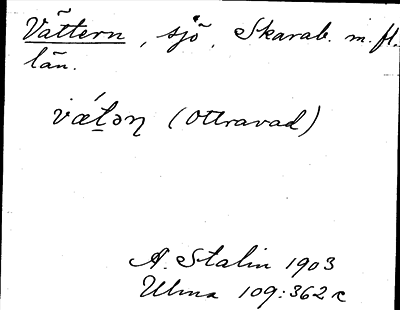 Vättern, sjö, Skarab. m. fl.
län.
vǽt̲ən̡ (Ottravad)
A. Stalin 1903
Ulma 109:362 c